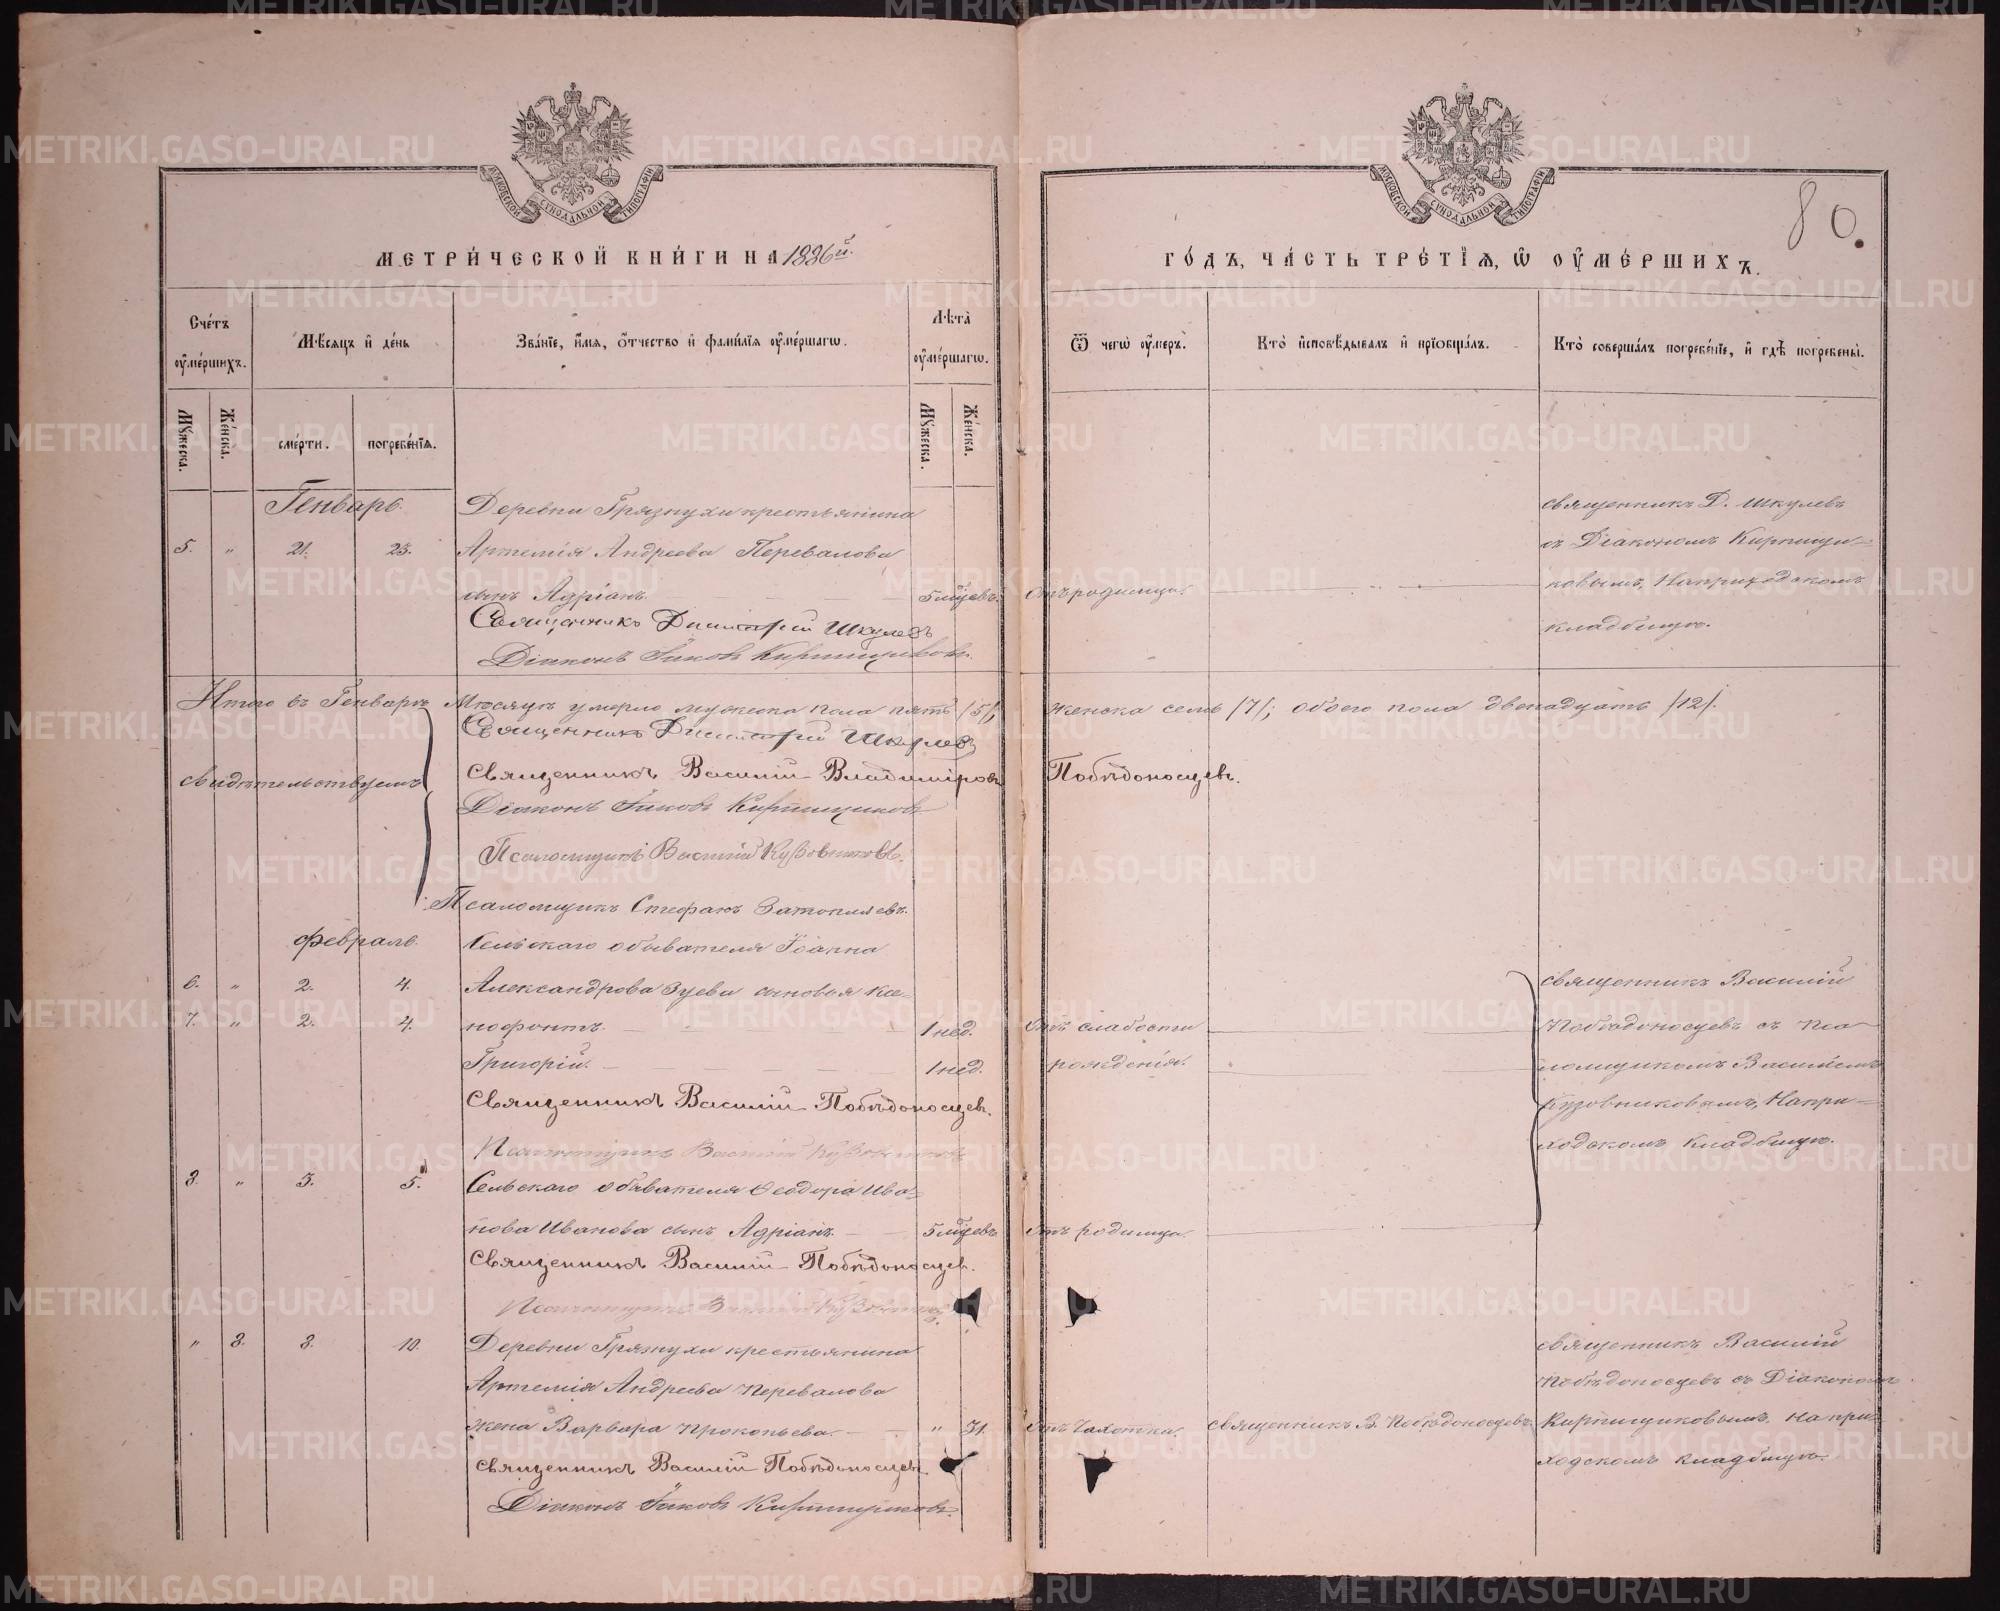 МОСКОВСКОЙ СУНОДАЛЬНОЙ ТИПОГРАФІИ
МЕТРИ́ЧЕСКОЙ КНИ́ГИ НА 1886й.
Сче́тъ ᲂу҆ме́ршихъ.
Мѣ́сяцъ и҆ де́нь
Зва́нїе, и҆́мѧ, ѻ҆́тчество и҆ фами́лїѧ ᲂу҆ме́ршагѡ.
Лѣ́та ᲂу҆ме́ршагѡ.
Мꙋ́жеска.
Же́нска.
сме́рти.
погребе́нїѧ.
Мꙋ́жеска.
Же́нска.
Генварь.
Деревни Грязнухи крестьянина
5. " 21. 23. Артемія Андреева Перевалова
сынъ Адріанъ 5 мцевъ.
Священникъ Димитрій Шкулевъ
Діаконъ Іаковъ Кирпищиковъ.
Итого въ Генварѣ Мѣсяцѣ умерло мужеска пола пять /5/,
свидѣтельствуемъ
Священникъ Димитрій Шкулевъ
Священникъ Василій Владиміровъ
Діаконъ Іаковъ Кирпищиковъ
Псаломщикъ Василій Кузовниковъ.
Псаломщикъ Стефанъ Затопляевъ.
Февраль.
Сельскаго обывателя Іоанна
6. " 2. 4. Александрова Зуева сыновья Ксе-
7. " 2. 4. нофонтъ. 1 нед.
Григорій. 1 нед.
Священникъ Василій Побѣдоносцев.
Псаломщикъ Василій Кузовниковъ
8. " 3. 5. Сельскаго обывателя Ѳеодора Ива-
нова Иванова сынъ Адріанъ. 5 мцевъ
Священникъ Василій Побѣдоносцев.
Псаломщикъ Василій Кузовниковъ.
" 8. 8. 10. Деревни Грязнухи крестьянина
Артемія Андреева Перевалова
жена Варвара Прокопьева. " 31.
Священникъ Василій Побѣдоносцев
Діаконъ Іаковъ Кирпищиковъ.
МОСКОВСКОЙ СУНОДАЛЬНОЙ ТИПОГРАФІИ
80.
ГО́ДЪ, ЧА́СТЬ ТРЕ́ТЇѦ, Ѡ҆ ОУ҆МЕ́РШИХЪ.
Ѿ чегѡ̀ ᲂу҆́меръ.
Кто̀ и҆сповѣ́дывалъ и҆ прїѡбща́лъ.
Кто̀ соверша́лъ погребе́нїе, и҆ гдѣ̀ погребены̀.
священникъ Д. Шкулевъ
съ Діакономъ Кирпищи-
отъ родимца. ковымъ, На приходскомъ
кладбищѣ.
женска семь /7/; обоего пола двенадцать /12/.
Побѣдоносцев.
священникъ Василій
Отъ слабости Побѣдоносцевъ съ Пса-
рожденія. ломщикомъ Василіемъ
Кузовниковымъ, На при-
ходскомъ кладбищѣ.
Отъ родимца.
священникъ Василій
Побѣдоносцевъ съ Діакономъ
Отъ чахотки. священникъ В. Побѣдоносцевъ. Кирпищиковымъ. На при-
ходскомъ кладбищѣ.
METRIKI.GASO-URAL.RU